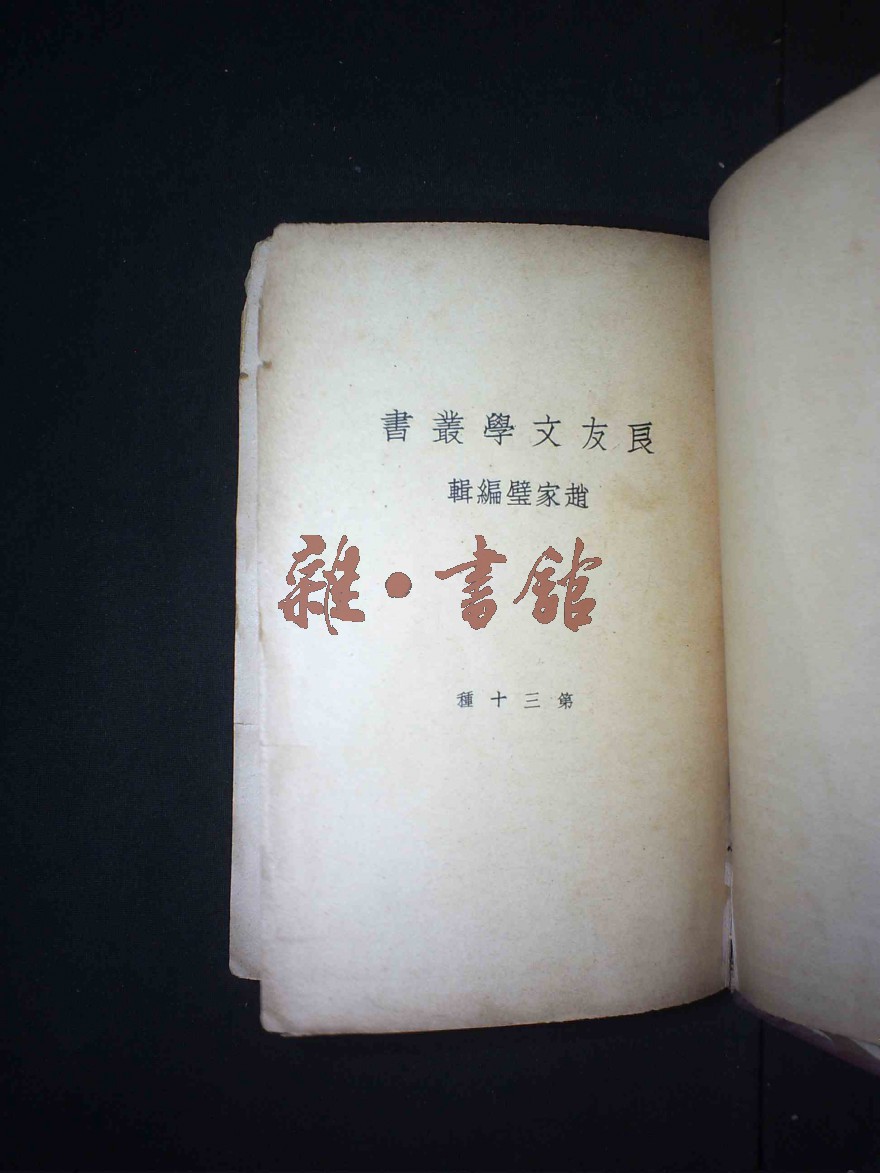 良友文學叢書
趙家璧編輯
雜·書館
第三十種